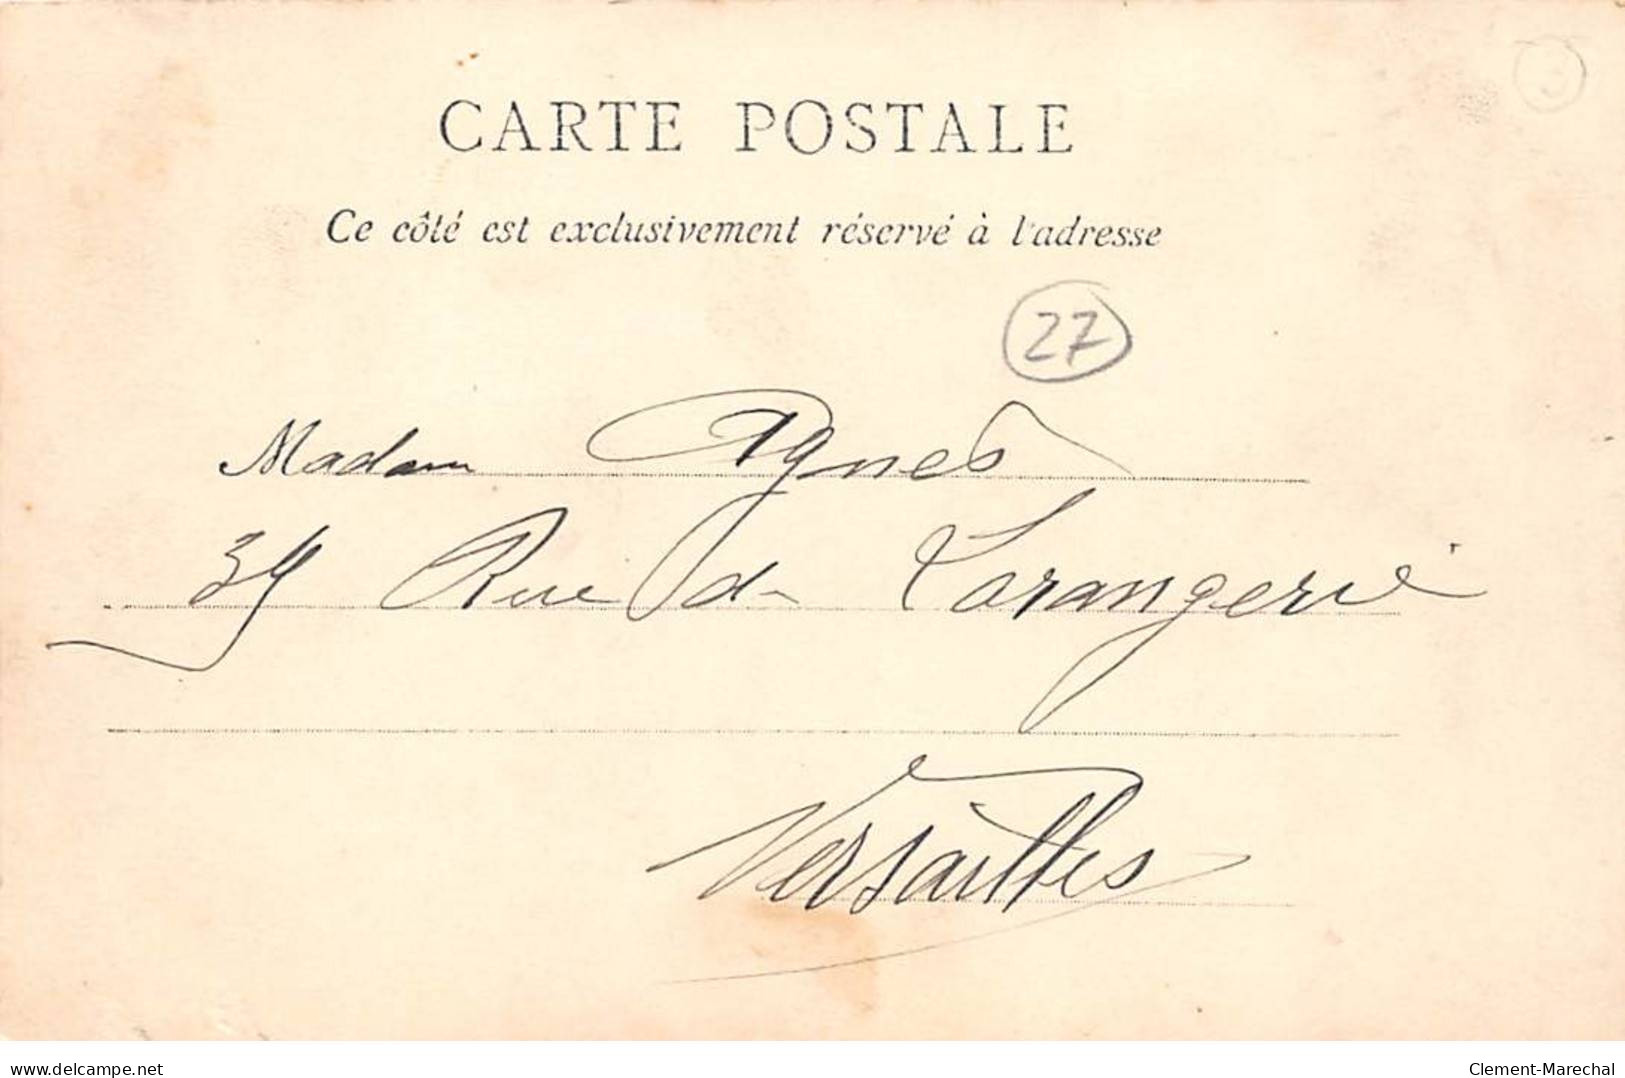 CARTE POSTALE
Ce côté est exclusivement réservé à l'adresse
27
Madam Agnes
39 Rue de Lorangerie
Versailles
delcampe.net
Clement-Marechal